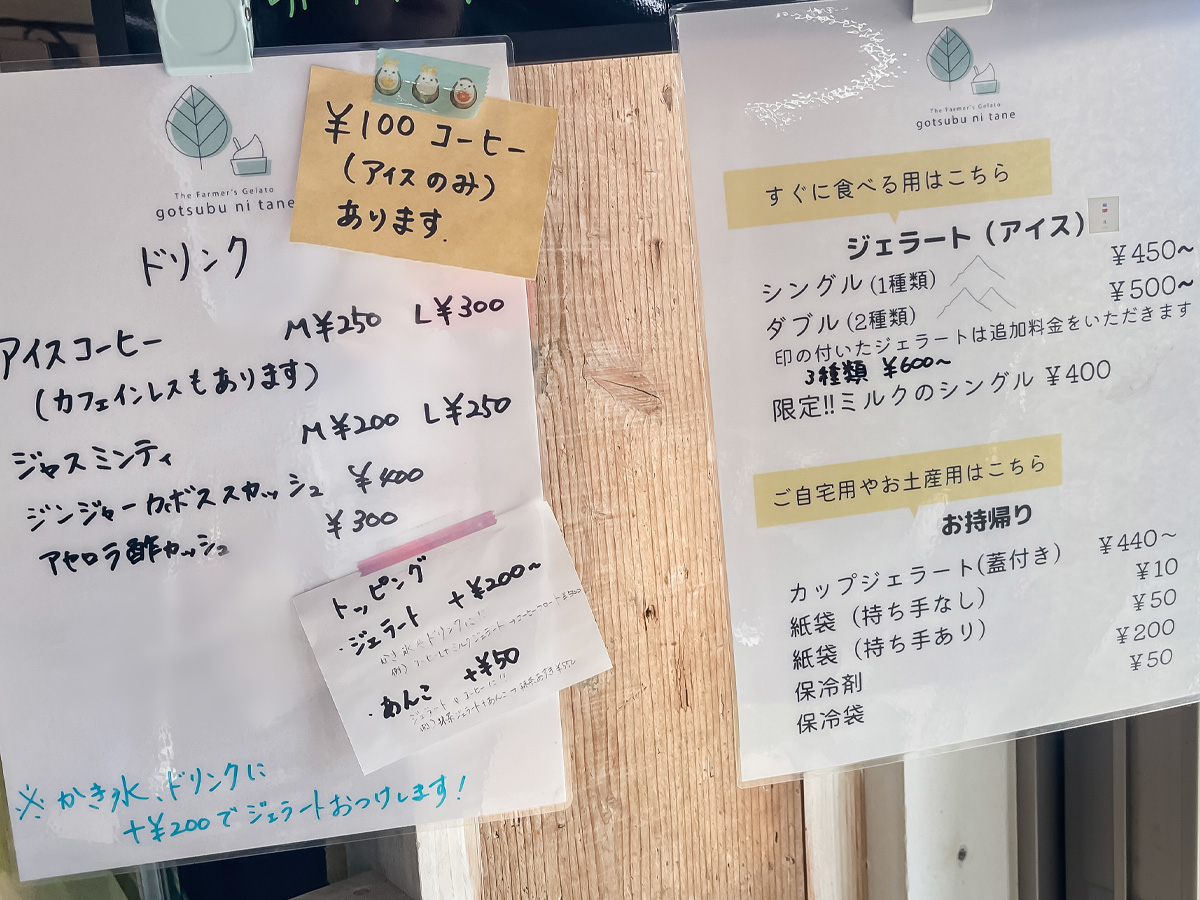 The Farmer's Gelato
gotsubu ni tane
¥100 コーヒー
(アイスのみ)
あります.
ドリンク
アイスコーヒー M¥250 L¥300
(カフェインレスもあります)
ジャスミンティ M¥200 L¥250
ジンジャーカボススカッシュ ¥400
アセロラ酢カッシュ ¥300
トッピング
・ジェラート +¥200~
かき氷やドリンクに!!
・あんこ +¥50
ジェラートやコーヒーに!!
※かき氷、ドリンクに
+¥200でジェラートおつけします!
The Farmer's Gelato
gotsubu ni tane
すぐに食べる用はこちら
ジェラート（アイス）
シングル (1種類) ¥450~
ダブル (2種類) ¥500~
印の付いたジェラートは追加料金をいただきます
3種類 ¥600~
限定!!ミルクのシングル ¥400
ご自宅用やお土産用はこちら
お持帰り
カップジェラート(蓋付き) ¥440~
紙袋（持ち手なし） ¥10
紙袋（持ち手あり） ¥50
保冷剤 ¥200
保冷袋 ¥50